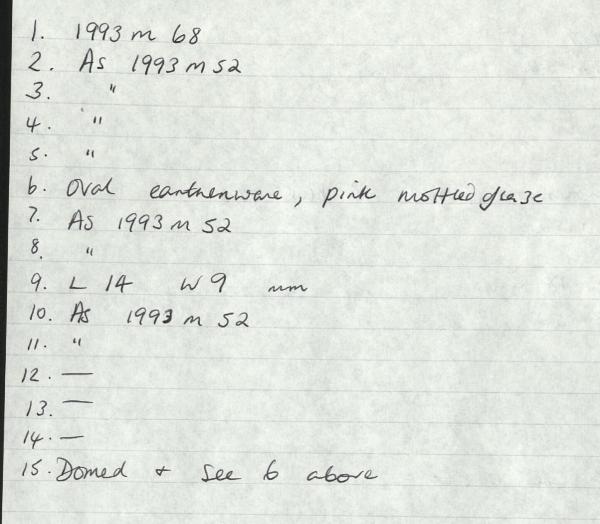 1. 1993 m 68
2. As 1993 m 52
3. "
4. "
5. "
6. Oval earthenware, pink mottled glaze
7. As 1993 m 52
8. "
9. L 14 W 9 mm
10. As 1993 m 52
11. "
12. —
13. —
14. —
15. Domed + see 6 above